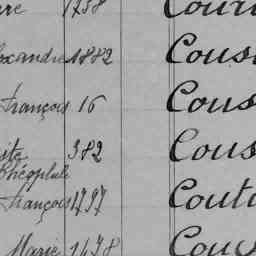 1758 Cour
1882 Cous
François 16 Cous
382 Cous
Théophile
François 1797 Cout
Marie 1478 Couv